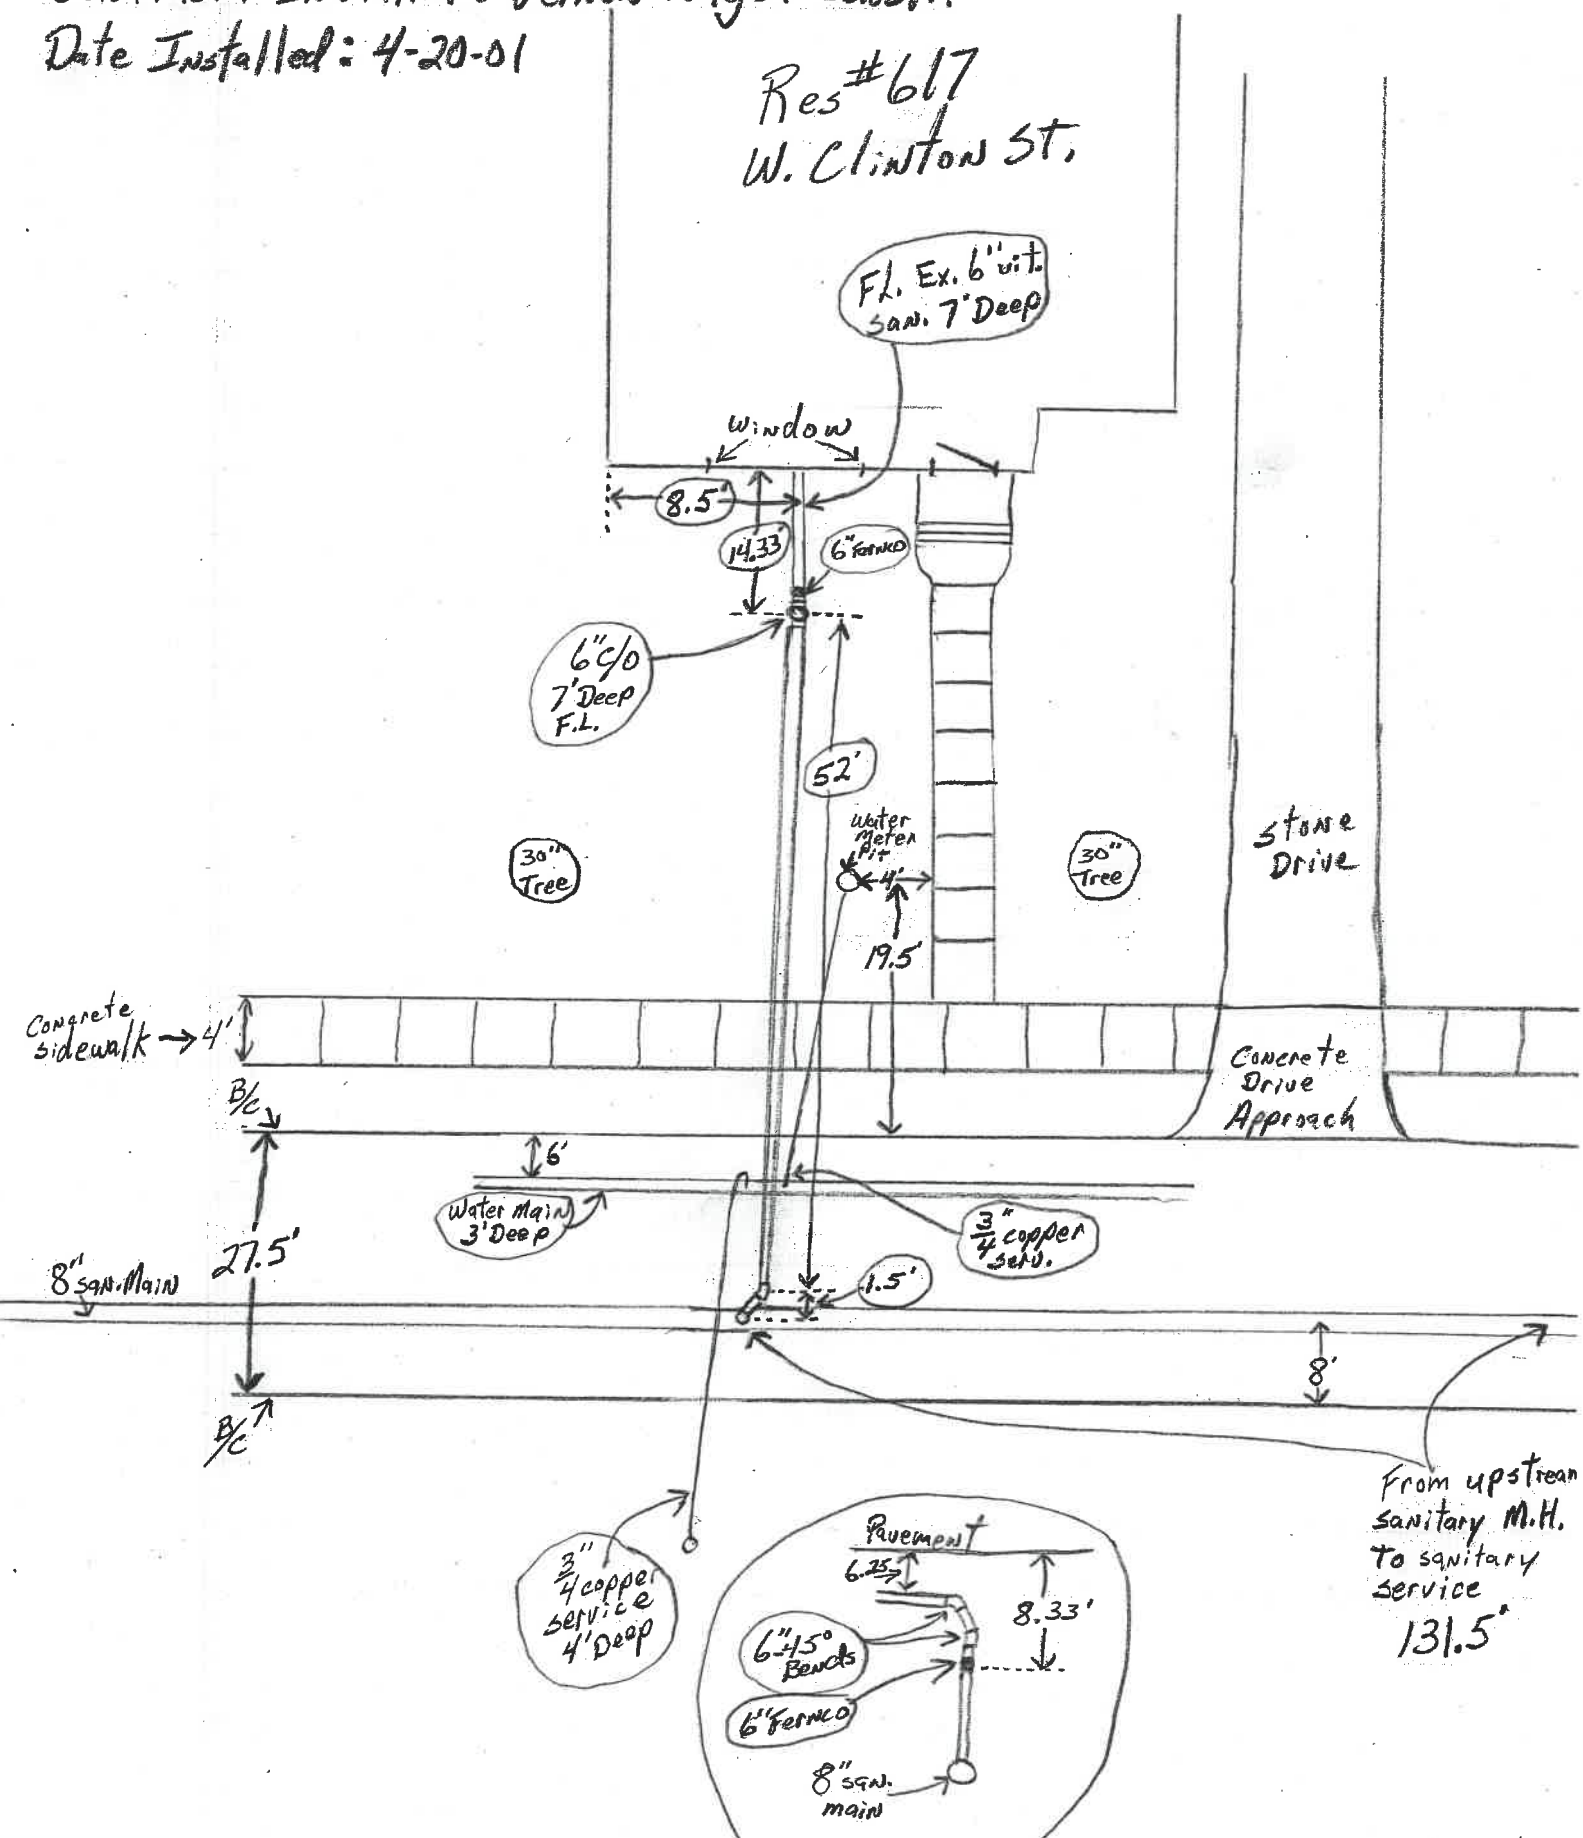 Date Installed: 4-20-01
Res #617
W. Clinton St.
F.L. Ex. 6" vit.
san. 7' Deep
Window
8.5'
14.33'
6" Fernco
6" c/o
7' Deep
F.L.
52'
Water
Meter
Pit
4'
30"
Tree
30"
Tree
Stone
Drive
19.5'
Concrete
sidewalk → 4'
Concrete
Drive
Approach
B/C
6'
Water Main
3' Deep
3/4" copper
serv.
27.5'
8" san. Main
1.5'
8'
B/C
From upstream
sanitary M.H.
To sanitary
service
131.5'
3/4" copper
service
4' Deep
Pavement
6.25
8.33'
6"-45°
Bends
6" Fernco
8" san.
main